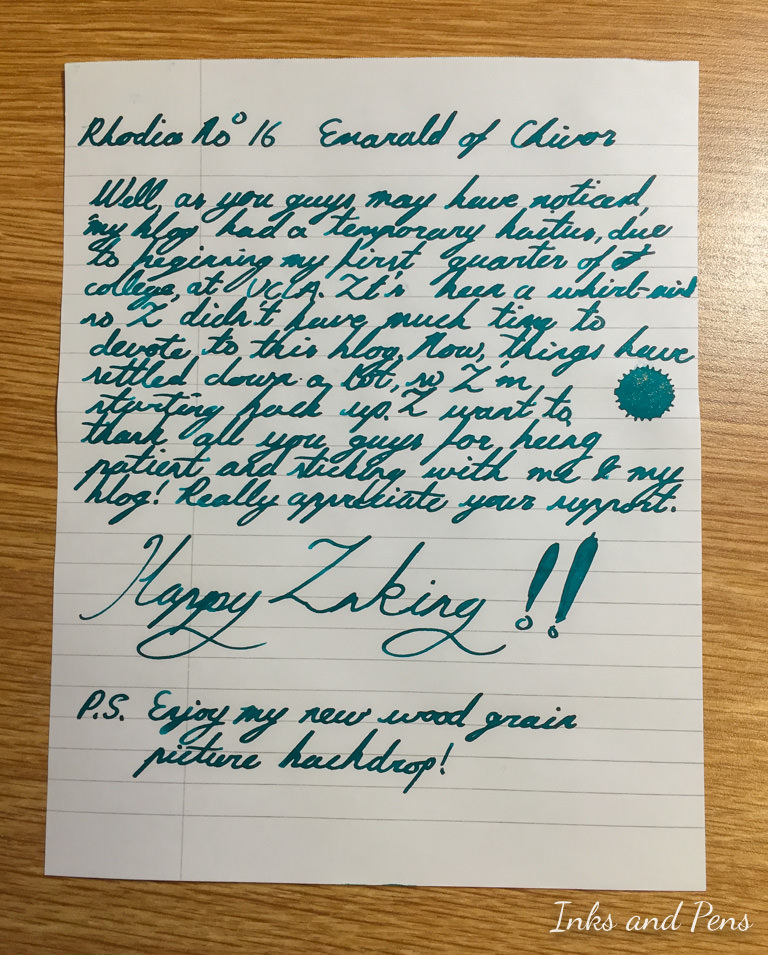 Rhodia No 16 Emerald of Chivor
Well, as you guys may have noticed,
my blog had a temporary haitus, due
to beginning my first quarter of
college, at UCLA. It's been a whirl-wind
so I didn't have much time to
devote to this blog. Now, things have
settled down a lot, so I'm
starting back up. I want to
thank all you guys for being
patient and sticking with me & my
blog! Really appreciate your support.
Happy Inking!!
P.S. Enjoy my new wood grain
picture backdrop!
Inks and Pens